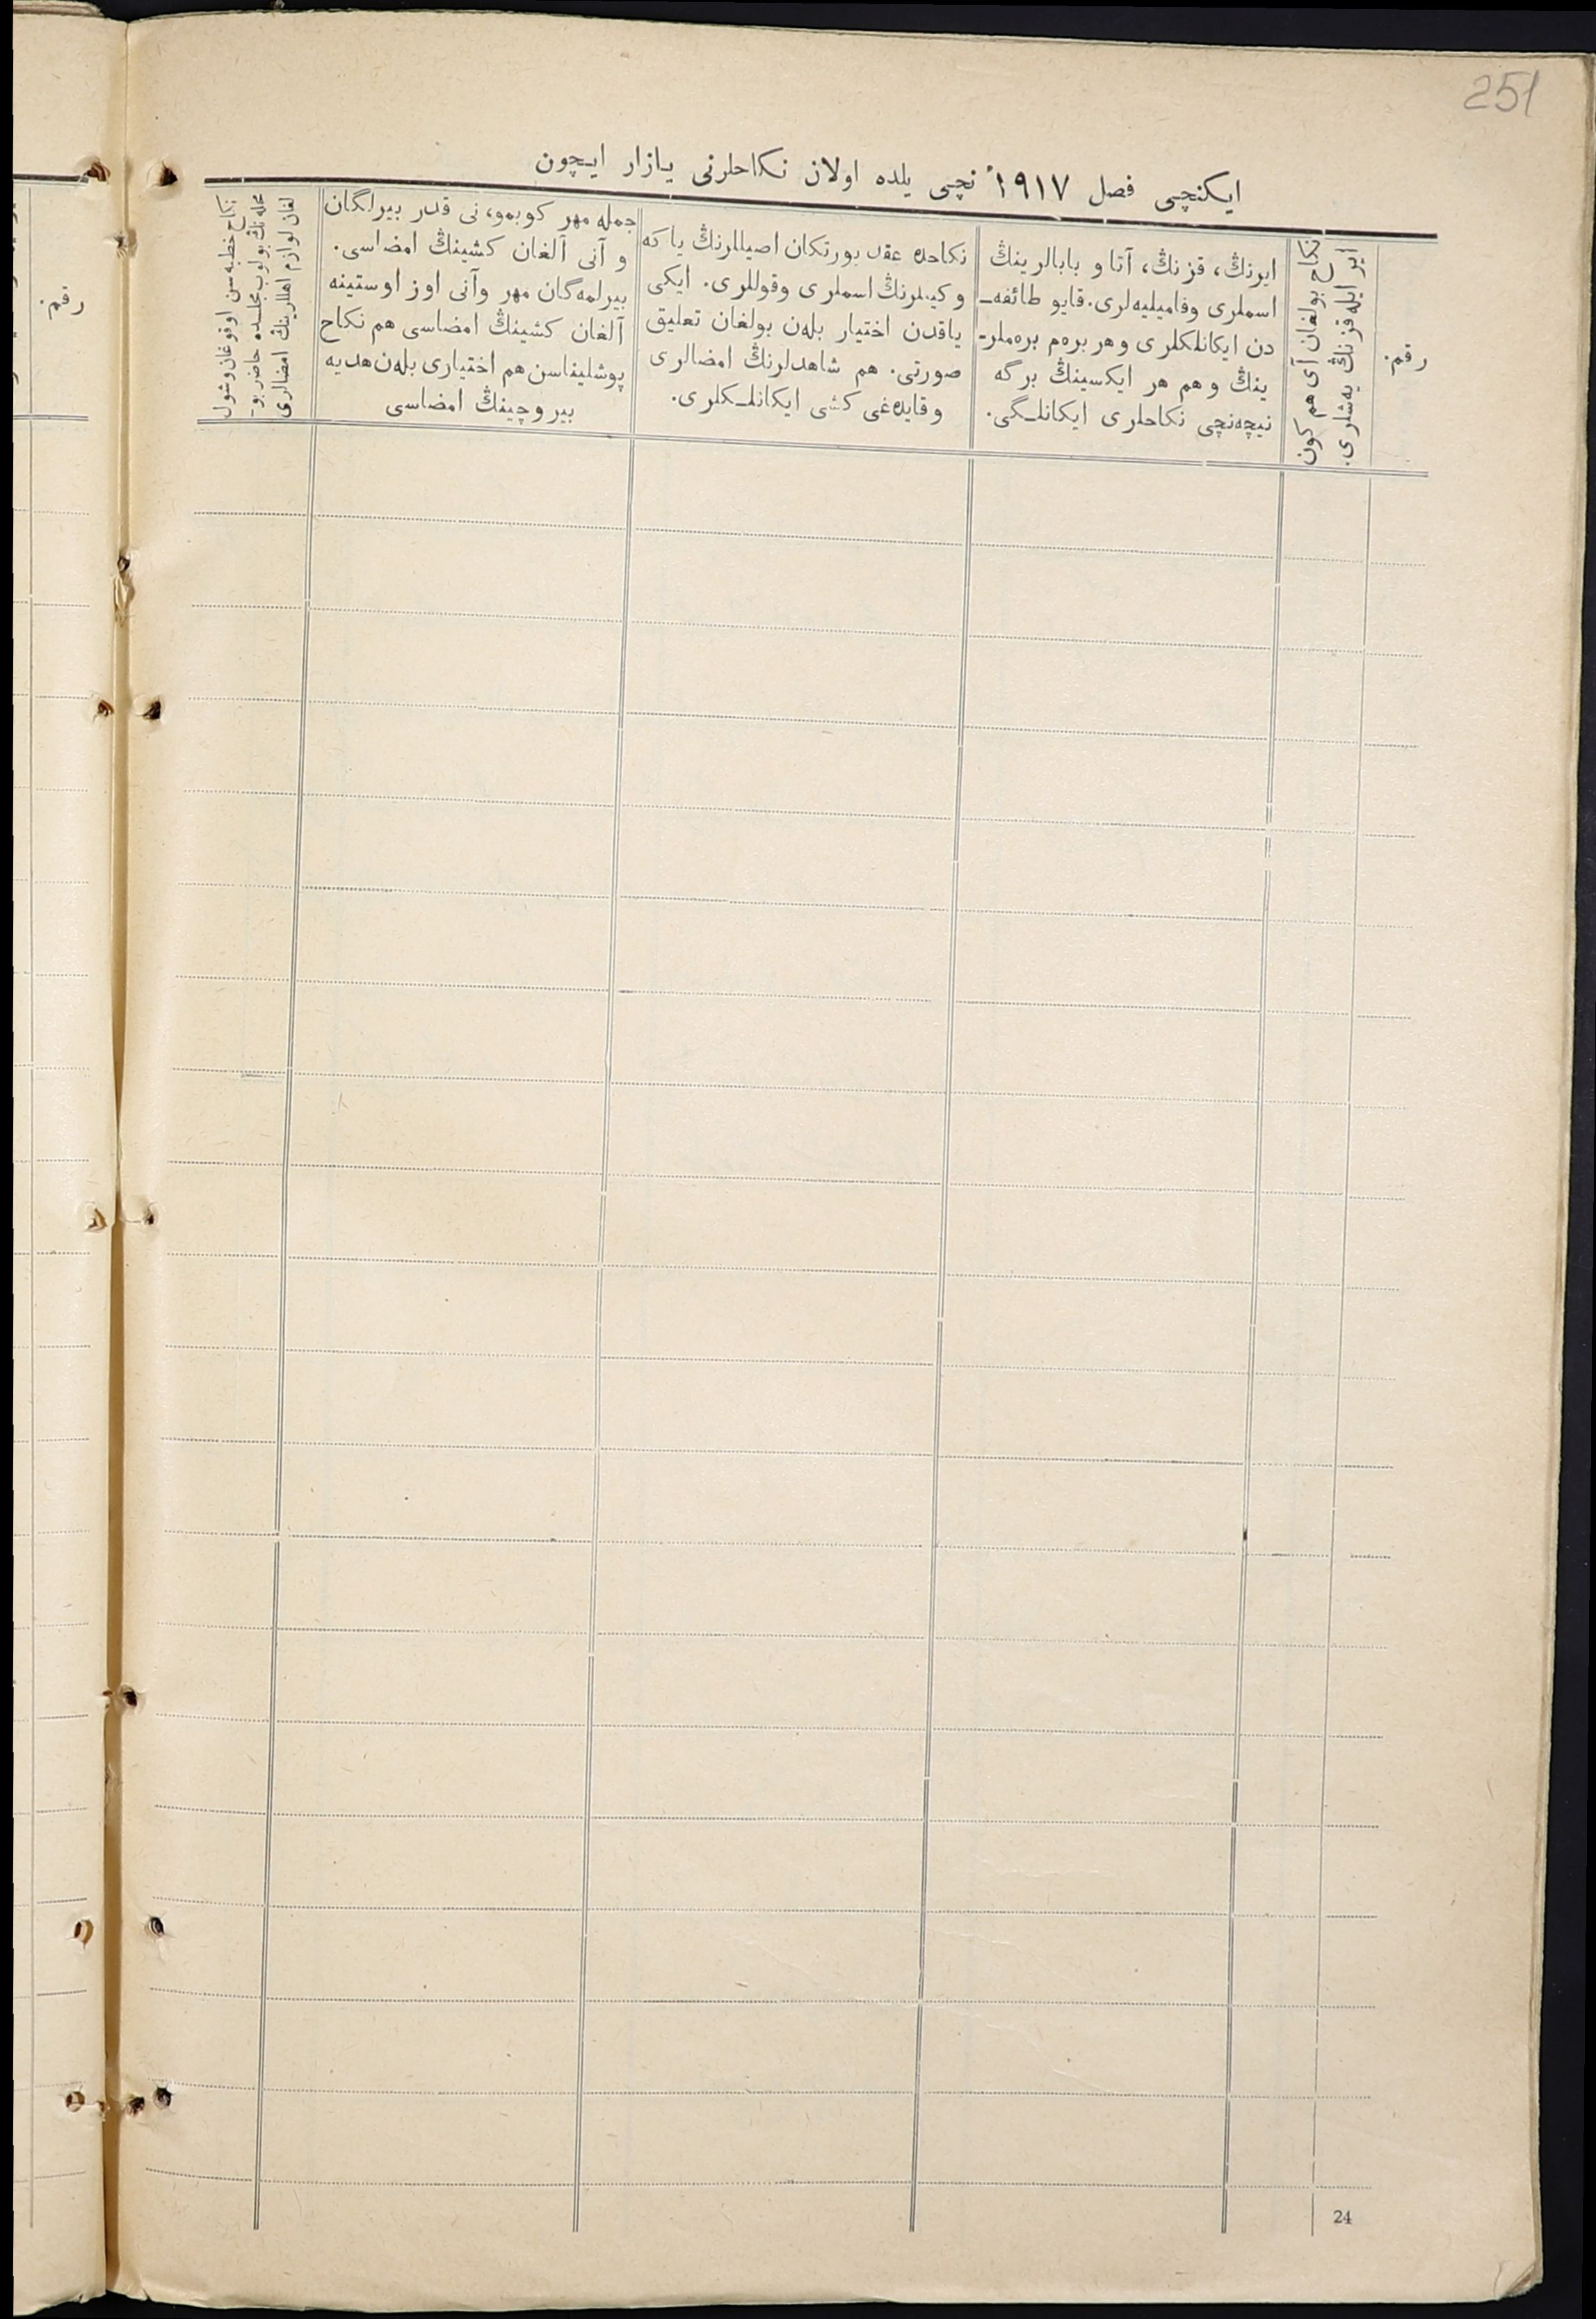 251
ایکنچی فصل ۱۹۱۷ نچی یلده اولان نکاحلرنی یازار ایچون
رقم.
نکاح بولغان آی هم کون
ایر ایله قزنڭ یه‌شلری.
ایرنڭ، قزنڭ، آتا و بابالرینڭ
اسملری وفامیلیه‌لری. قایو طائفه‌ـ
دن ایکانلکلری و هر بره‌م بره‌ملر-
ینڭ و هم هر ایکسینڭ برگه
نیچه‌نچی نکاحلری ایکانلـگی.
نکاحده عقد بورتکان اصیللرنڭ یا که
و کیللرنڭ اسملری وقوللری. ایکی
یاقدن اختیار بله‌ن بولغان تعلیق
صورتی. هم شاهدلرنڭ امضالری
و قایده‌غی کشی ایکانلـکلری.
جمله مهر کوبمو، نی قدر بیرلگان
و آنی آلغان کشینڭ امضاسی.
بیرلمه‌گان مهر وآنی اوز اوستینه
آلغان کشینڭ امضاسی هم نکاح
پوشلیناسن هم اختیاری بله‌ن هدیه
بیروچینڭ امضاسی
نکاح خطبه سن اوقوغان وشول
محله نڭ بولوب مجلسده حاضر بو-
لغان لوازم اهللرینڭ امضالری
رقم.
24